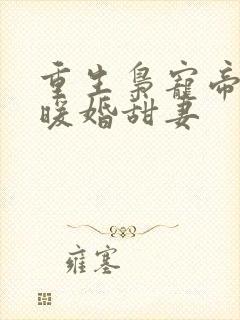 重生枭宠帝
暖婚甜妻
雍塞